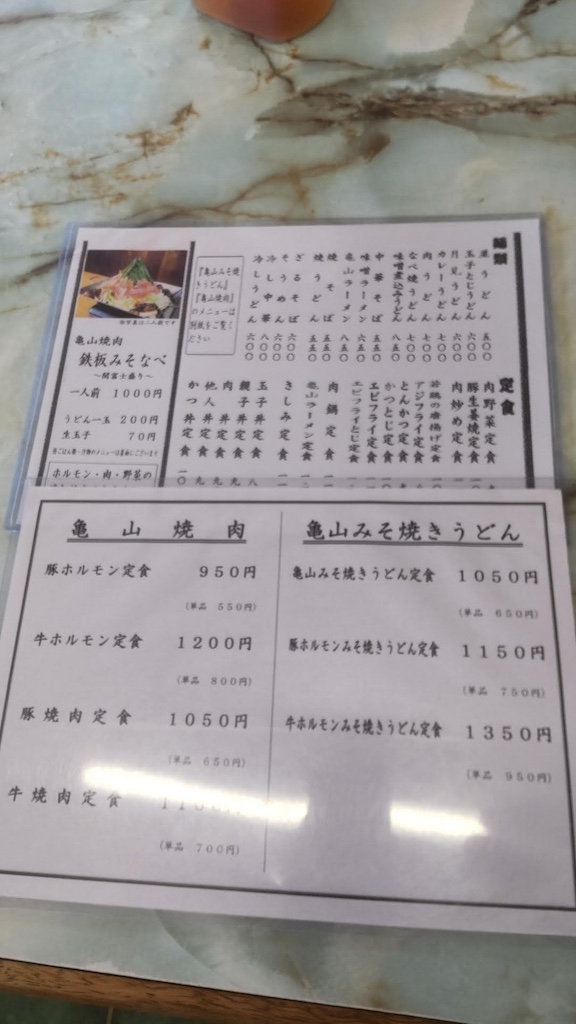 麺類
並うどん 五〇〇
玉子とじうどん
月見うどん 六〇〇
カレーうどん 六〇〇
肉うどん 七〇〇
なべ焼うどん 七〇〇
味噌煮込みうどん
中華そば 五五〇
味噌ラーメン 六五〇
亀山ラーメン 八五〇
焼そば 五五〇
焼うどん 五五〇
ざるそば 六〇〇
そうめん 六〇〇
冷し中華 八五〇
冷しうどん 六〇〇
『亀山みそ焼
きうどん』
『亀山焼肉』
のメニューは
別紙をご覧く
ださい
定食
肉野菜定食
豚生姜焼定食
肉炒め定食
若鶏の唐揚げ定食
アジフライ定食
とんかつ定食
かつとじ定食
エビフライ定食
エビフライとじ定食
肉鍋定食
亀山ラーメン定食
きしみ定食
玉子丼定食
親子丼定食
肉丼定食
他人丼定食
かつ丼定食
当写真は二人前です
亀山焼肉
鉄板みそなべ
～関富士盛り～
一人前 1000円
うどん一玉 200円
生玉子 70円
ホルモン・肉・野菜の
亀山焼肉
豚ホルモン定食 950円
(単品 550円)
牛ホルモン定食 1200円
(単品 800円)
豚焼肉定食 1050円
(単品 650円)
牛焼肉定食
(単品 700円)
亀山みそ焼きうどん
亀山みそ焼きうどん定食 1050円
(単品 650円)
豚ホルモンみそ焼きうどん定食 1150円
(単品 750円)
牛ホルモンみそ焼きうどん定食 1350円
(単品 950円)